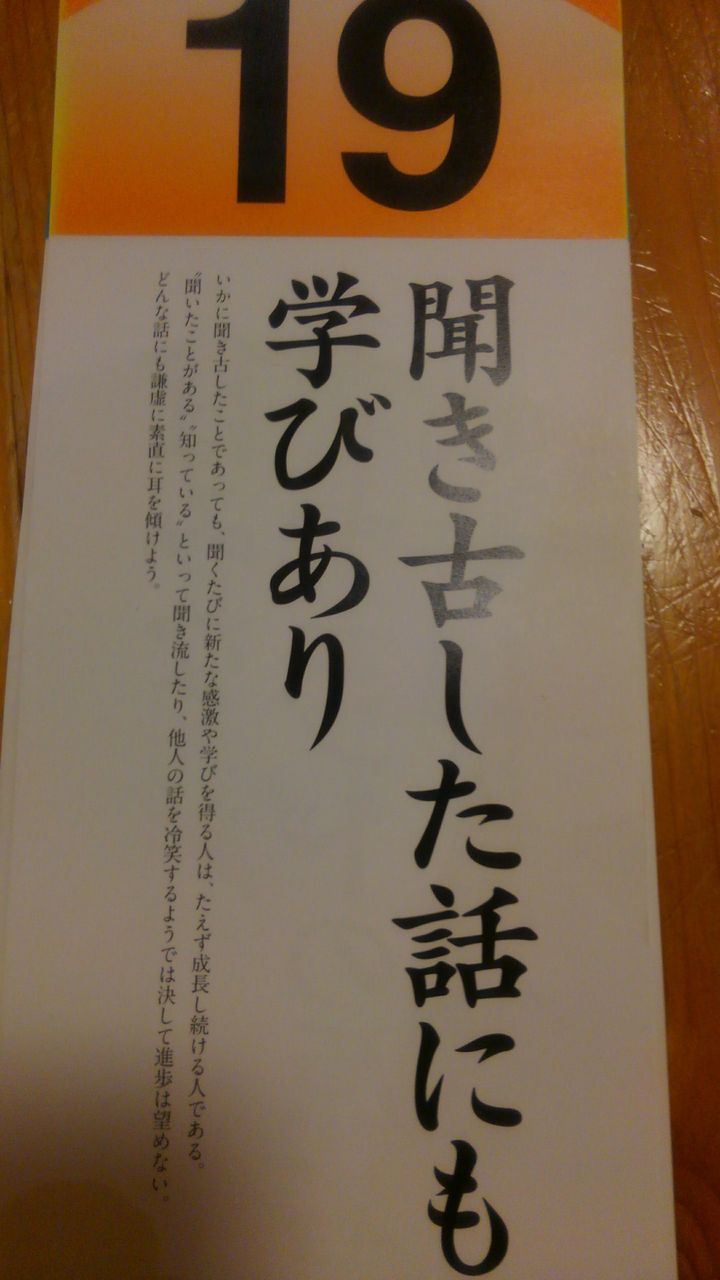 19
聞き古した話にも
学びあり
いかに聞き古したことであっても、聞くたびに新たな感激や学びを得る人は、たえず成長し続ける人である。
〝聞いたことがある〟〝知っている〟といって聞き流したり、他人の話を冷笑するようでは決して進歩は望めない。
どんな話にも謙虚に素直に耳を傾けよう。